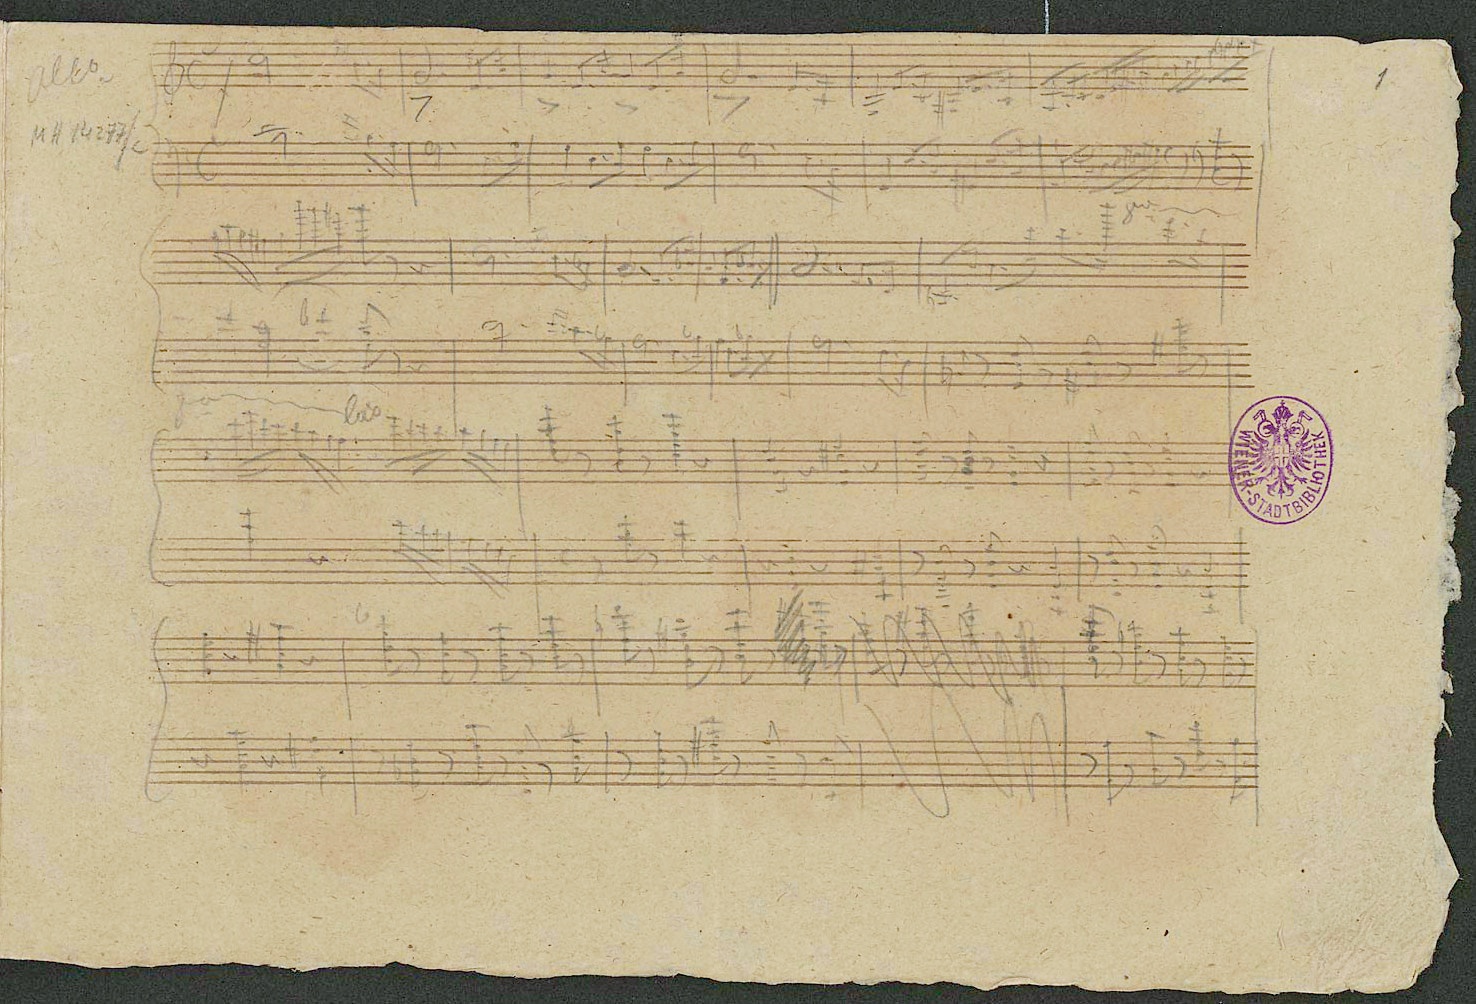 Allo.
1
MH 14277/c
8va
8va loco
WIENER-STADTBIBLIOTHEK